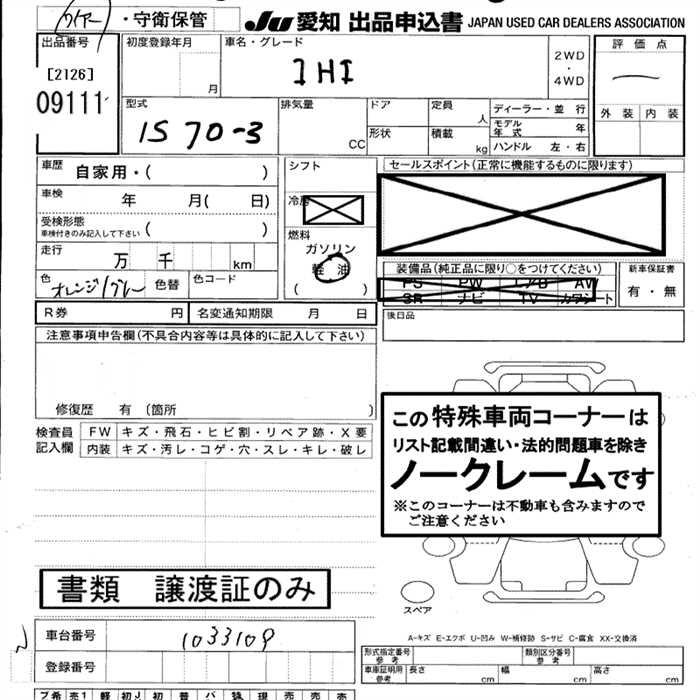 ・守衛保管
JU 愛知 出品申込書 JAPAN USED CAR DEALERS ASSOCIATION
出品番号
[2126]
09111
初度登録年月
月
車名・グレード
IHI
2WD
・
4WD
評価点
外装 内装
型式
IS 70-3
排気量
CC
ドア
形状
定員
人
積載
kg
ディーラー・並行
モデル年式 年
ハンドル 左・右
車歴 自家用・( )
車検 年 月( 日)
受検形態
車検付きのみ記入して下さい ( )
走行 万 千 km
色 オレンジ/グレー 色替 色コード
シフト
冷房
燃料
ガソリン
軽油
( )
セールスポイント(正常に機能するものに限ります)
装備品(純正品に限り○をつけてください)
PS PW エアB AW
SR ナビ TV カワシート
新車保証書
有・無
R券 円 名変通知期限 月 日
後日品
注意事項申告欄(不具合内容等は具体的に記入して下さい)
修復歴 有 (箇所 )
検査員
記入欄
FW キズ・飛石・ヒビ割・リペア跡・X要
内装 キズ・汚レ・コゲ・穴・スレ・キレ・破レ
この特殊車両コーナーは
リスト記載間違い・法的問題車を除き
ノークレームです
※このコーナーは不動車も含みますので
ご注意ください
書類 譲渡証のみ
スペア
A-キズ E-エクボ U-凹み W-補修跡 S-サビ C-腐食 XX-交換済
車台番号 1033109
登録番号
形式指定番号
参考
類別区分番号
参考
車庫証明用
参考
長さ cm 幅 cm 高さ cm